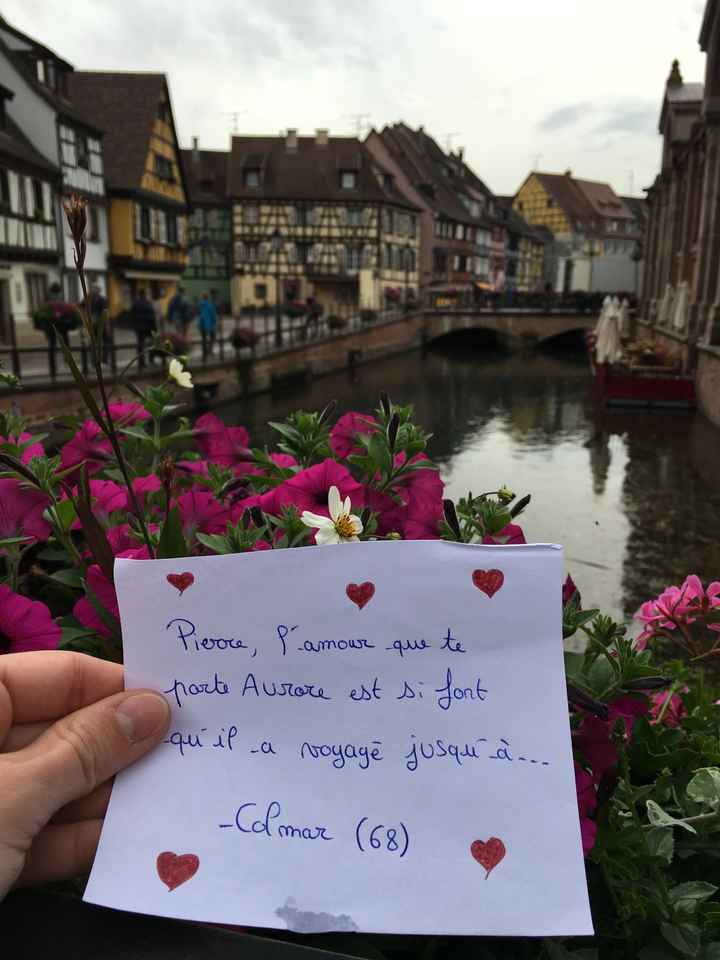 Pierre, l'amour que te
porte Aurore est si fort
qu'il a voyagé jusqu'à...
-Colmar (68)